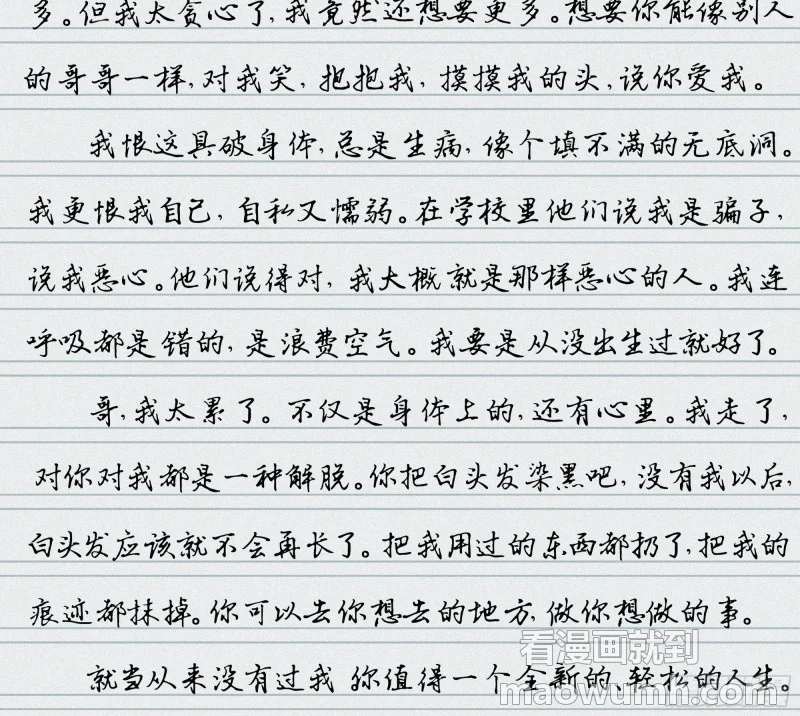 多。但我太贪心了,我竟然还想要更多。想要你能像别人
的哥哥一样,对我笑,抱抱我,摸摸我的头,说你爱我。
我恨这具破身体,总是生病,像个填不满的无底洞。
我更恨我自己,自私又懦弱。在学校里他们说我是骗子,
说我恶心。他们说得对,我大概就是那样恶心的人。我连
呼吸都是错的,是浪费空气。我要是从没出生过就好了。
哥,我太累了。不仅是身体上的,还有心里。我走了,
对你对我都是一种解脱。你把白头发染黑吧,没有我以后,
白头发应该就不会再长了。把我用过的东西都扔了,把我的
痕迹都抹掉。你可以去你想去的地方,做你想做的事。
就当从来没有过我 你值得一个全新的、轻松的人生。
看漫画就到
maowumh.com